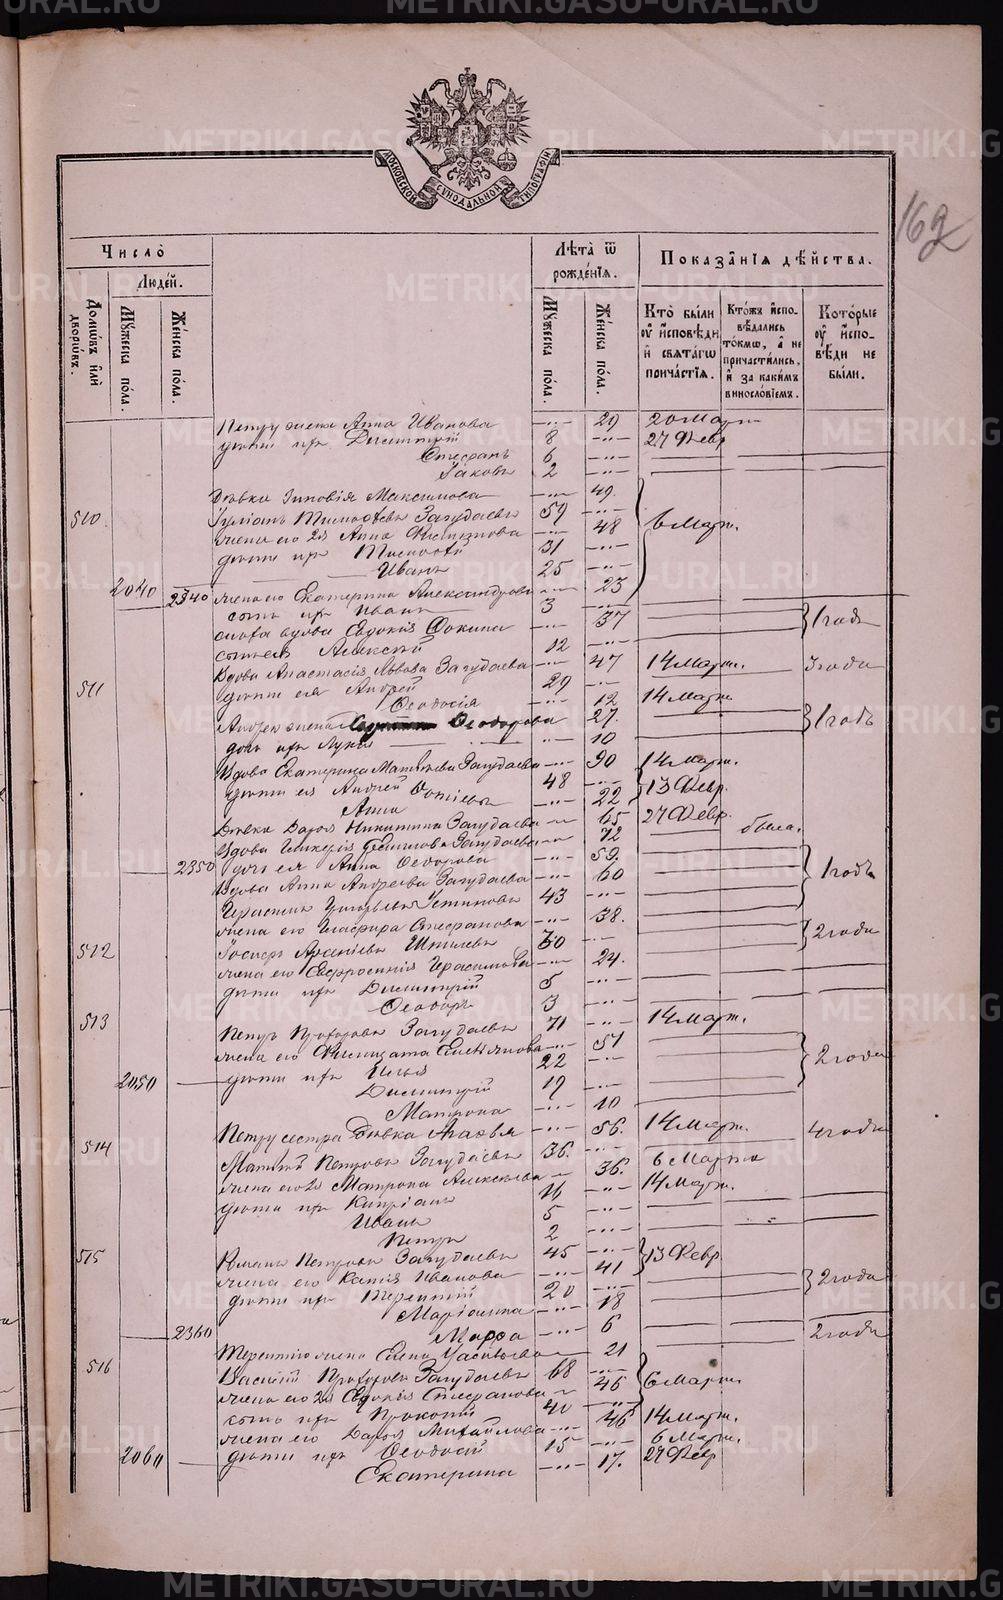 МОСКОВСКОЙ СУНОДАЛЬНОЙ ТИПОГРАФІИ
162
Число̀
Людей.
Домѡвъ или дворѡвъ.
Мꙋжеска пола.
Женска пола.
Лѣта ѿ рожденїѧ.
Мꙋжеска пола.
Женска пола.
Показанїѧ дѣйства.
Кто были ᲂу исповѣди и свѧтагѡ причастїѧ.
Ктожъ исповѣдались токмѡ, а не причастились, и за какимъ винословїемъ.
Которые ᲂу исповѣди не были.
Петру жена Анна Иванова 29 20 Марта
дѣти ихъ Димитрій 8 27 Февр
Стефанъ 6
Іаковъ 2
Дѣвка Зиновія Максимова 49
510 Іуліанъ Тимофѣевъ Загудаевъ 59
жена его 2я Анна 48 6 Март.
дѣти ихъ Тимофѣй 31
Иванъ 25
2040 2340 жена его Екатерина Александрова 23
сынъ ихъ Иванъ 3
сноха вдова Евдокія Фокина 37 1 годъ
сынъ ея Алексѣй 12
511 Вдова Анастасія Львова Загудаева 47 14 Март. 3 года
дѣти ея Андрей 29
Феодосія 12 14 Март
Андрею жена Феодорова 27. 1 годъ
дочь ихъ 10
Вдова Екатерина Матвѣева Загудаева 90 14 Март.
дѣти ея Андрей 48 13 Февр.
Анна 22
Дѣвка Дарья Никитина Загудаева 65 27 Февр.
Вдова Загудаева 72 была.
2350 дочь ея Анна Феодорова 59.
Вдова Анна Андреева Загудаева 60 1 годъ
Герасимъ Устиновъ 43
жена его Глафира Стефанова 38.
512 Іосифъ Арсеніевъ 30 2 года
жена его Евфросинія Герасимова 24.
дѣти ихъ Димитрій 5
Феодоръ 3
513 Петръ Прохоровъ Загудаевъ 71 14 Март.
жена его Фелицата Емельянова 51
2050 дѣти ихъ Илья 22 2 года
Димитрій 19
Матрона 10
Петру сестра Дѣвка Агафья 56. 14 Март. 4 года
514 Петровъ Загудаевъ 36. 6 Марта
жена его 2я Матрона Алексѣева 36. 14 Март.
дѣти ихъ Кипріанъ 11
Иванъ 5
Петръ 2
515 Романъ Петровъ Загудаевъ 45 13 Февр.
жена его Ксенія Иванова 41
дѣти ихъ Терентій 20 2 года
Маріамна 18
2360 Марфа 6
Терентію жена Елена 21 2 года
516 Василій Прохоровъ Загудаевъ 68
жена его 2я Евдокія Стефанова 45 6 Март.
сынъ ихъ Прокопій 40
жена его Дарья Михайлова 46 14 Март.
дѣти ихъ Феодосій 15 6 Март.
2060 Екатерина 17. 27 Февр
METRIKI.GASO-URAL.RU